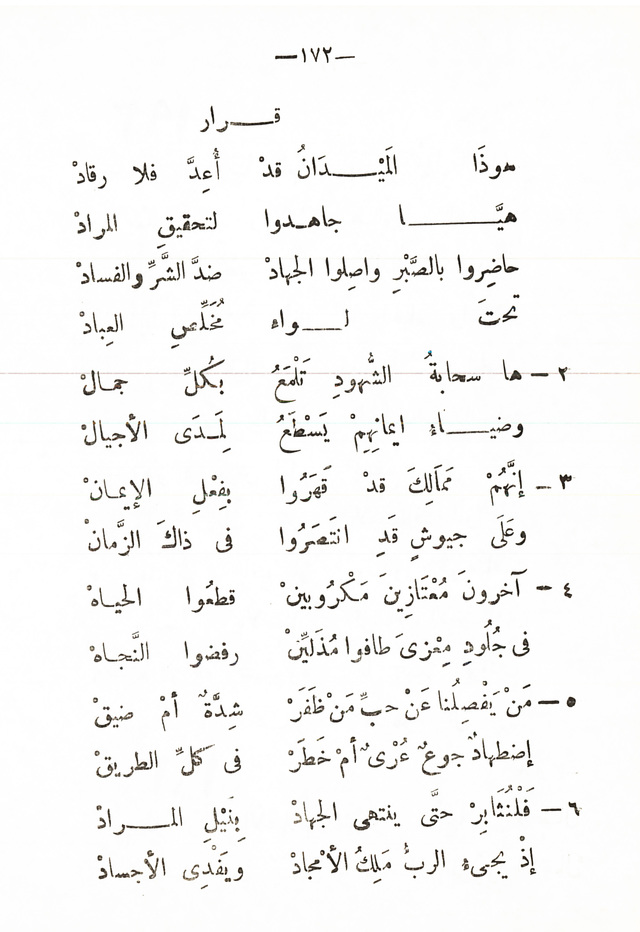 —١٧٢—
قـــرار
هوذَا المَيْـــدَانُ قدْ أُعِدَّ فلا رقادْ
هيَّـــا جاهـدوا لتحقيقِ المرادْ
حاضِروا بالصَّبْرِ واصِلوا الجهادْ ضدَّ الشَّرِّ والفسادْ
تحتَ لـــواء مُخَلِّصِ العِبادْ
٢ — ها سحابةُ الشُّهودِ تَلْمَعُ بكُلِّ جمـالْ
وضيـــاء ايمانِهِمْ يَسْطَعُ لِمَـدَى الأجيالْ
٣ — إنَّهُمْ مَمَالِكَ قدْ قَهَرُوا بِفِعْلِ الإيمـانْ
وعَلَى جيوشٍ قَدِ انتَصَرُوا فى ذاكَ الزَّمانْ
٤ — آخرونَ مُعْتَازِينَ مَكْرُوبينْ قطعُوا الحيـاهْ
فى جُلُودِ مِعْزىَ طافوا مُذَلِّينْ رفضوا النَّجـاهْ
٥ — مَنْ يَفْصِلُنا عَنْ حبِّ مَنْ ظَفَرْ شِدَّةٌ أمْ ضيقْ
إضطهادٌ جوعٌ عُرْىٌ أمْ خَطَرْ فى كلِّ الطريقْ
٦ — فَلْنُثَابِرْ حتَّى ينتهى الجهادْ بِنَيْلِ المـــرادْ
إذْ يجىء الربُّ مَلِكُ الأمجادْ ويَفْدِى الأجسادْ